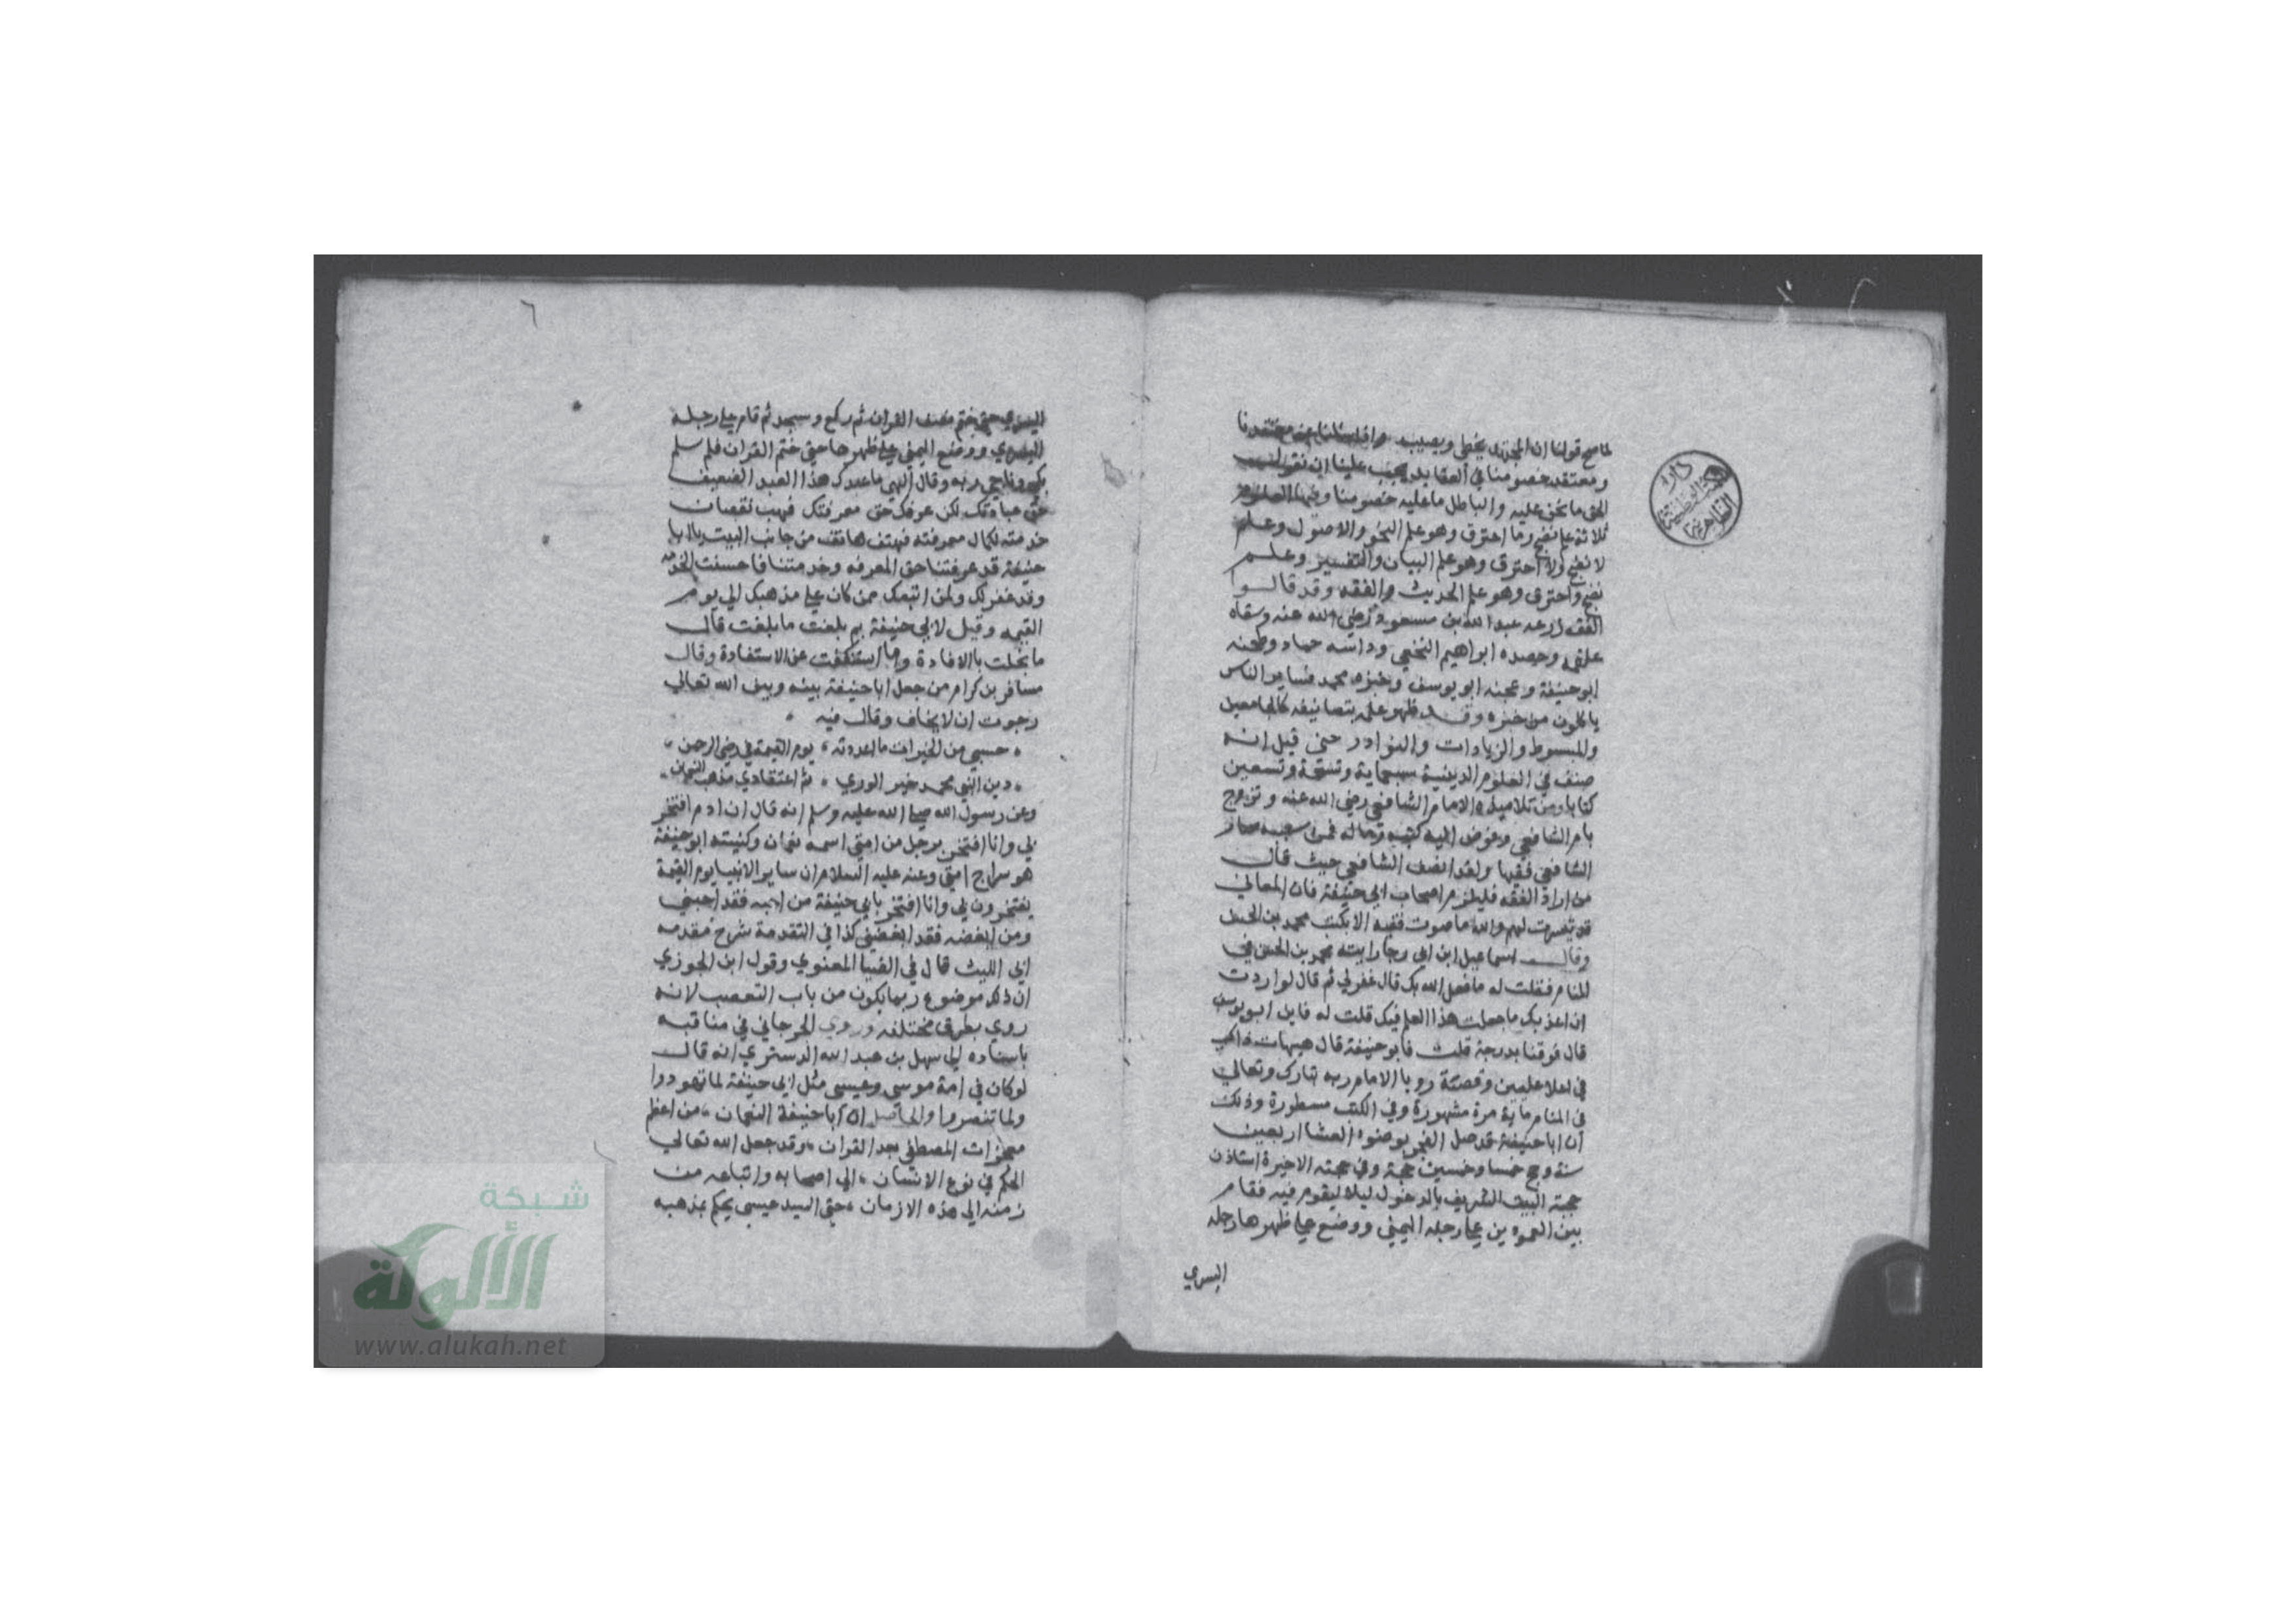 لما صح قولنا ان المجتهد يخطي ويصيب واذا سئلنا عن معتقدنا
ومعتقد خصومنا في العقايد يجب علينا ان نقول
الحق ما نحن عليه والباطل ما عليه خصومنا وفيها العلوم
ثلاثة علم نضج وما احترق وهو علم النحو والاصول وعلم
لا نضج ولا احترق وهو علم البيان والتفسير وعلم
نضج واحترق وهو علم الحديث والفقه وقد قالوا
الفقه زرعه عبد الله بن مسعود رضي الله عنه وسقاه
علقمه وحصده ابراهيم النخعي وداسه حماد وطحنه
ابو حنيفة وعجنه ابو يوسف وخبزه محمد فساير الناس
ياكلون من خبزه وقد ظهر علمه بتصانيفه كالجامعين
والمبسوط والزيادات والنوادر حتى قيل انه
صنف في العلوم الدينية سبعماية وتسعة وتسعين
كتابا ومن تلاميذه الامام الشافعي رضي الله عنه وتزوج
بام الشافعي وفوض اليه كتبه وماله فمن سببه صار
الشافعي فقيها ولقد انصف الشافعي حيث قال
من اراد الفقه فليلزم اصحاب ابي حنيفة فان المعاني
قد تيسرت لهم والله ما صرت فقيه الا بكتب محمد بن الحسن
وقال اسماعيل ابن ابي رجا رايته محمد بن الحسن في
المنام فقلت له ما فعل الله بك قال غفر لي ثم قال لو اردت
ان اعذبك ما جعلت هذا العلم فيك قلت له فاين ابو يوسف
قال فوقنا بدرجة قلت فابو حنيفة قال هيهات ذاك
في اعلا عليين وقصته رويا الامام ربه تبارك وتعالى
في المنام ماية مرة مشهورة وفي الكتب مسطورة وذلك
ان ابا حنيفة قد صلى الفجر بوضوء العشا اربعين
سنة وحج خمسا وخمسين حجة وفي حجته الاخيرة استاذن
حجبة البيت الشريف بالدخول ليلا ليقوم فيه فقام
بين العمودين على رجله اليمني ووضع على ظهرها رجله
اليسري
٦
اليسري حتى ختم نصف القران ثم ركع وسجد ثم قام على رجله
اليسري ووضع اليمني على ظهرها حتى ختم القران فلم سلم
بكي وناجي ربه وقال الهي ما عبدك هذا العبد الضعيف
حق عبادتك لكن عرفك حق معرفتك فهب نقصان
خدمته لكمال معرفته فهتف هاتف من جانب البيت يا ابا
حنيفة قد عرفتنا حق المعرفه وخدمتنا فاحسنت الخدمه
وقد غفر لك ولمن اتبعك ممن كان على مذهبك الي يوم
القيمه وقيل لابي حنيفة بم بلغت ما بلغت قال
ما بخلت بالافادة وما استنكفت عن الاستفادة وقال
مسافر بن كرام من جعل ابا حنيفة بينه وبين الله تعالي
رجوت ان لا يخاف وقال فيه
حسبي من الخيرات ما اعددته يوم القيمة في رضي الرحمن
دين النبي محمد خير الوري ثم اعتقادي مذهب النعمان
وعن رسول الله صلى الله عليه وسلم انه قال ان ادم افتخر
بي وانا افتخر برجل من امتي اسمه نعمان وكنيته ابو حنيفة
هو سراج امتي وعنه عليه السلام ان ساير الانبيا يوم القيمة
يفتخرون بي وانا افتخر بابي حنيفة من احبه فقد احبني
ومن ابغضه فقد ابغضني كذا في التقدمة شرح مقدمه
ابي الليث قال في الضيا المعنوي وقول ابن الجوزي
ان ذلك موضوع ربما يكون من باب التعصب لانه
روي بطرق مختلفه وروي الجرجاني في مناقبه
باسناده الي سهل بن عبد الله الدستري انه قال
لو كان في امة موسي وعيسى مثل ابي حنيفة لما تهودوا
ولما تنصروا والحاصل ان ابا حنيفة النعمان من اعظم
معجزات المصطفي بعد القران وقد جعل الله تعالي
الحكم في نوع الانسان الي اصحابه واتباعه من
زمنه الي هذه الازمان حتي السيد عيسي يحكم بمذهبه
شبكة
الألوكة
www.alukah.net